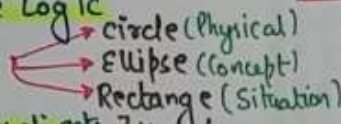 Logic
circle (Physical)
Ellipse (Concept)
Rectange (Situation)